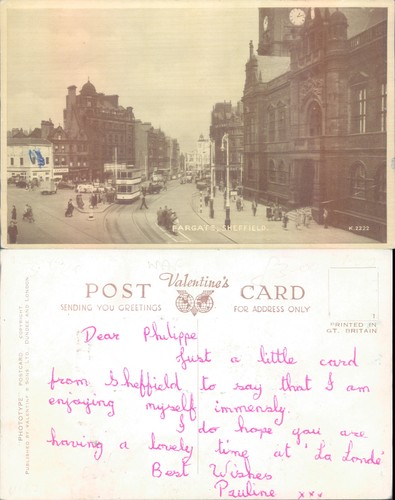 FARGATE, SHEFFIELD.
K.2222
POST Valentine's CARD
SENDING YOU GREETINGS
FOR ADDRESS ONLY
PRINTED IN
GT. BRITAIN
"PHOTOTYPE" POSTCARD COPYRIGHT
PUBLISHED BY VALENTINE & SONS LTD. DUNDEE AND LONDON
Dear Philippe
Just a little card
from Sheffield to say that I am
enjoying myself immensly.
I do hope you are
having a lovely time at 'La Londe'
Best Wishes
Pauline xxx